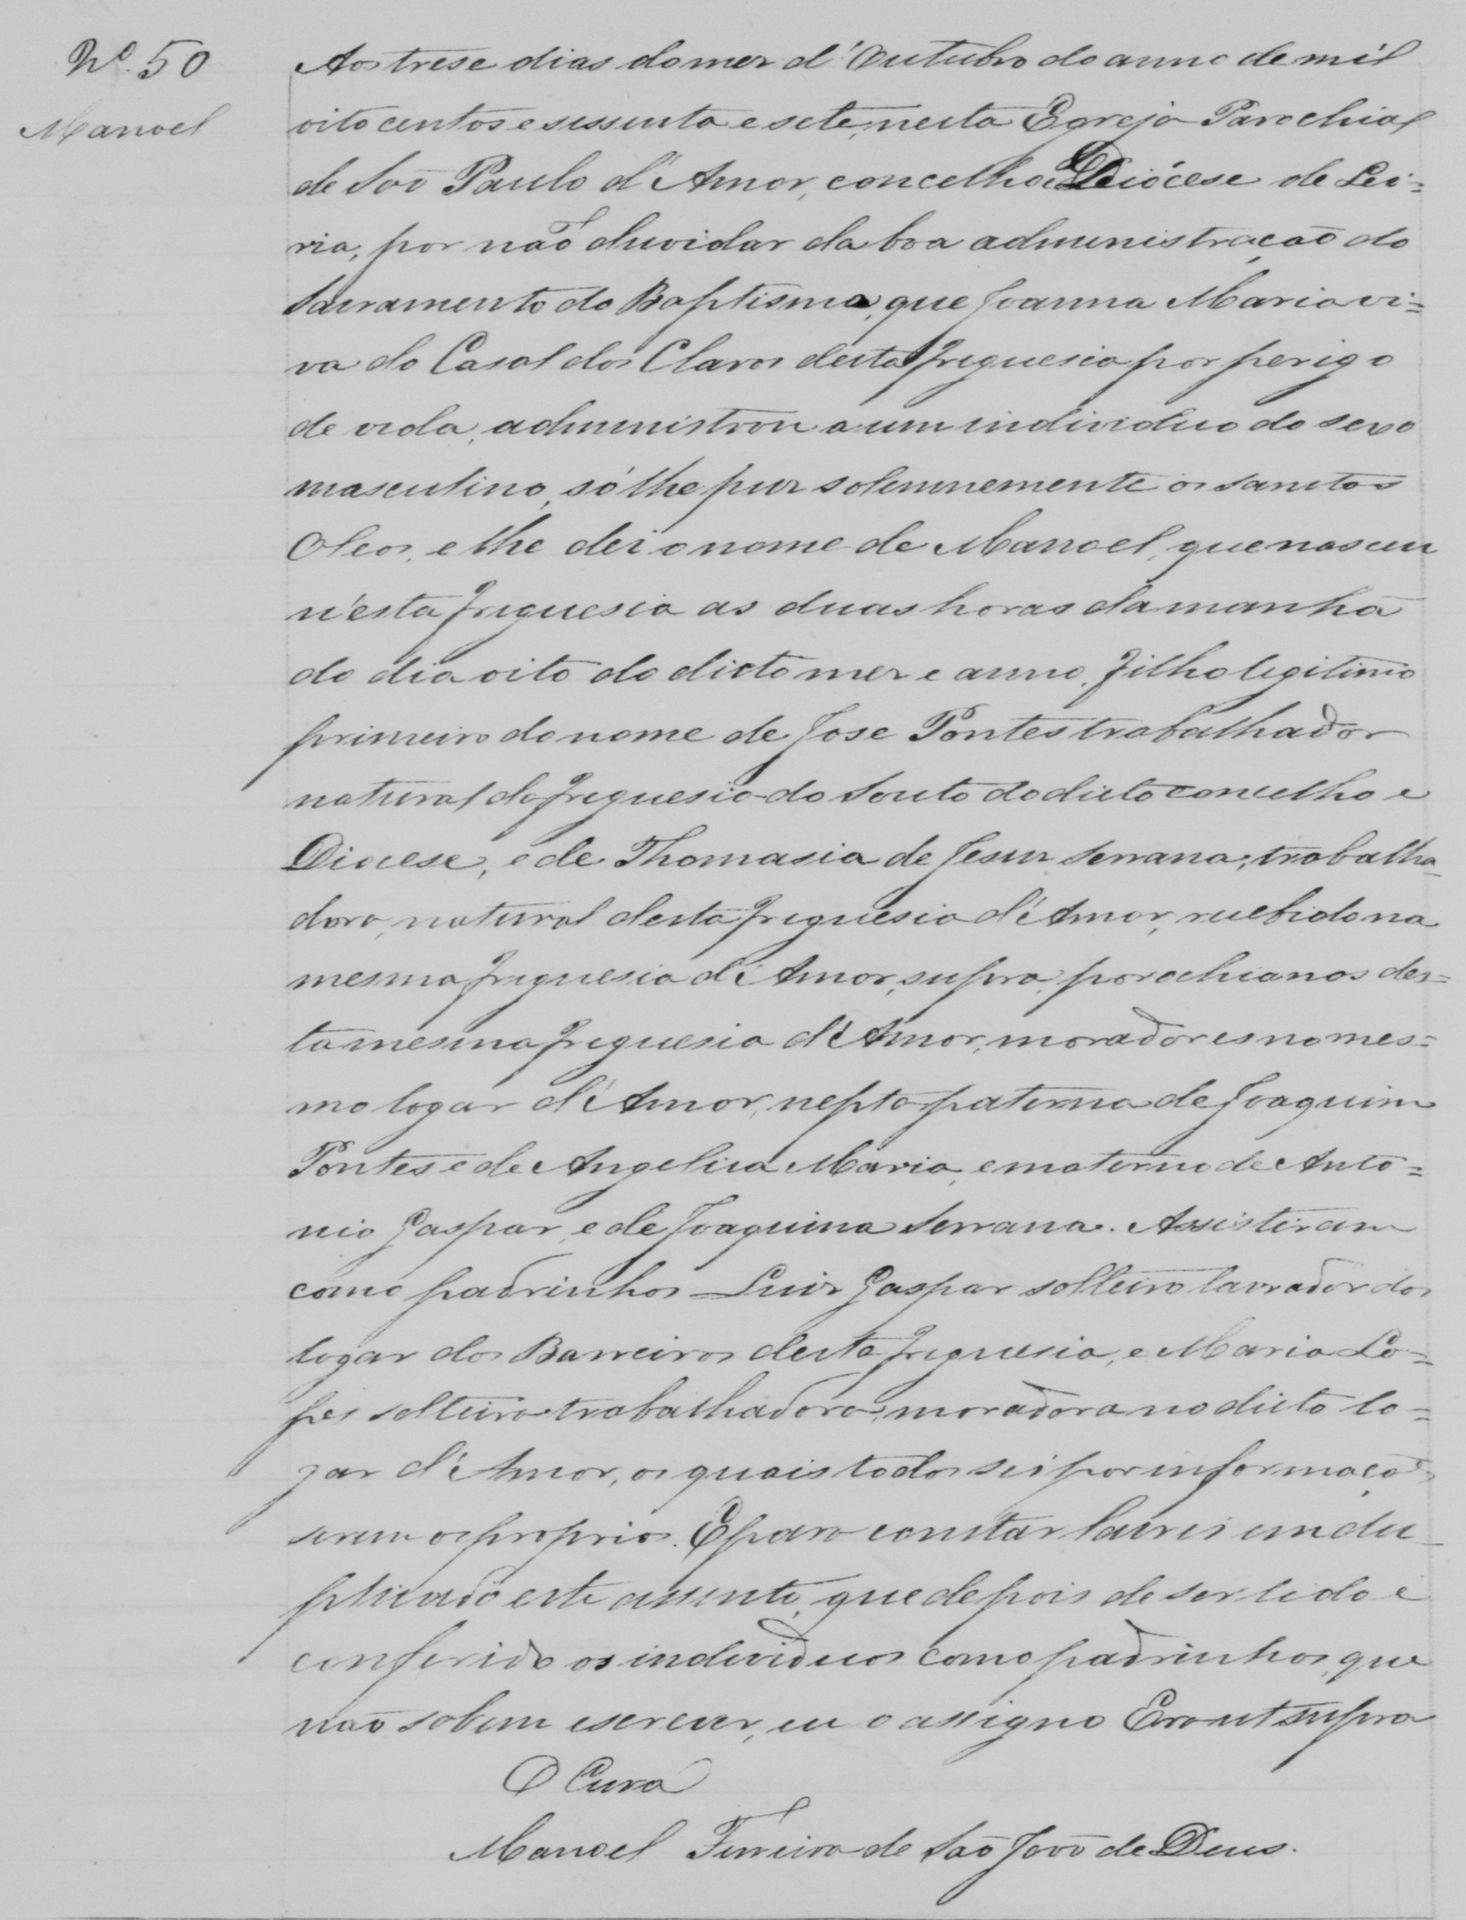 Nº 50
Manoel
Aos trese dias do mez d'Outubro do anno de mil
oito centos e sessenta e sete, nesta Egreja Parochial
de São Paulo d'Amor, concelho e Diócese de Lei=
ria, por não duvidar da boa administração do
Sacramento do Baptismo, que Joanna Maria vi=
va do Casal dos Claros desta freguesia por perigo
de vida, administrou a um individuo do sexo
masculino, só lhe puz solemnemente os sanctos
Oleos, e lhe dei o nome de Manoel, que nasceu
n'esta freguesia as duas horas da manhã
do dia oito do dicto mez e anno, filho legitimo
primeiro do nome de Jose Pontes trabalhador
natural da freguesia do Souto do dicto concelho e
Diocese, e de Thomasia de Jesus Serrana, trabalha-
dora, natural desta freguesia d'Amor, recebidos na
mesma freguesia d'Amor, supra, parochianos des=
ta mesma freguesia d'Amor, moradores no mes=
mo logar d'Amor, nepto paterno de Joaquim
Pontes e de Angelica Maria, e materno de Anto=
nio Gaspar, e de Joaquina Serrana. Assistiram
como padrinhos Luiz Gaspar solteiro lavrador do
logar dos Barreiros desta freguesia, e Maria Lo=
pes solteira trabalhadora, moradora no dicto lo=
gar d'Amor, os quais todos sei por informação
serem os proprios. E para constar lavrei em du-
plicado este assento, que depois de ser lido e
conferido os individuos como padrinhos, que
não sabem escrever, eu o assigno Era ut supra
O Cura
Manoel Ferreira de São João de Deus.